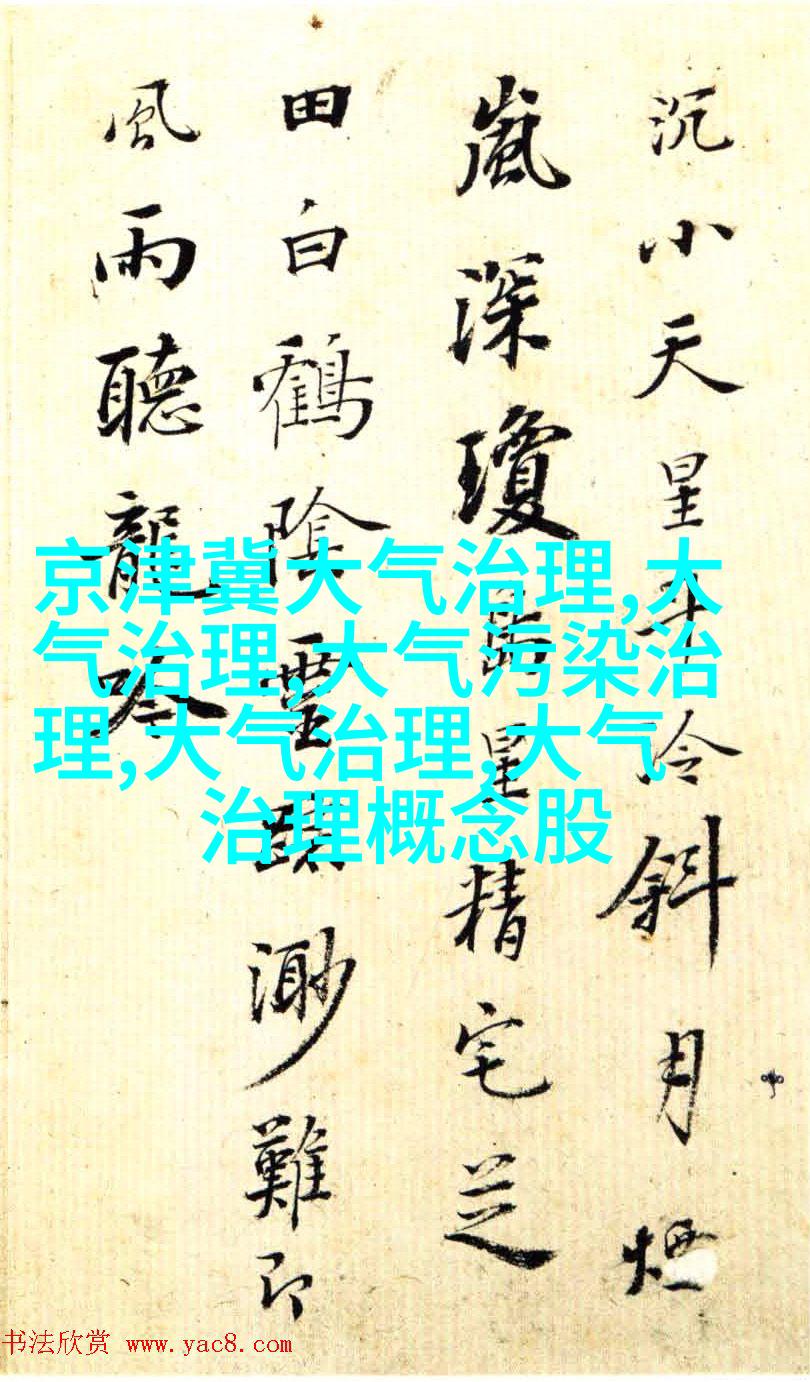 沉小天星斗冷斜月煙
嵐深瓊星精宅芝
田白鶴陰靈蹟渺難即
風雨聽龍吟
京津冀大气治理,大
气治理,大气污染治
理,大气治理,大气
治理概念股
书法欣赏 www.yac8.com